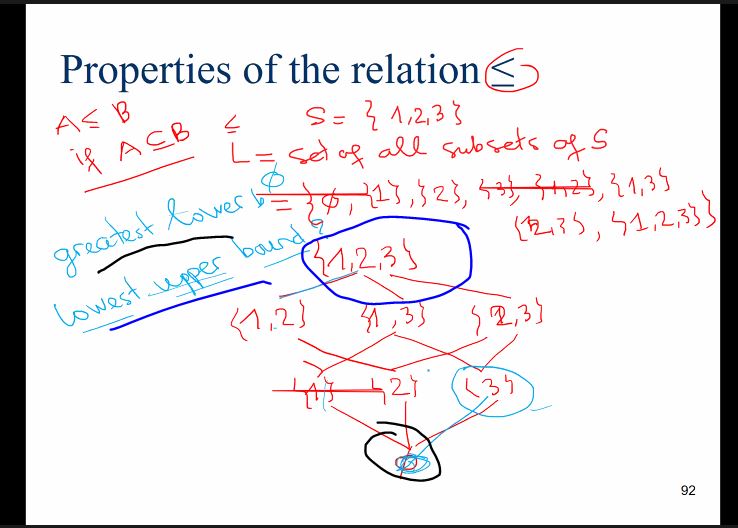 Properties of the relation ≤
A ≤ B
if A ⊆ B
≤
S = { 1,2,3}
L = set of all subsets of S
= {φ, {1}, {2}, {3}, {1,2}, {1,3}
{2,3}, {1,2,3}}
greatest lower b φ
lowest upper bound?
{1,2,3}
{1,2} {1,3} {2,3}
{1} {2} {3}
92